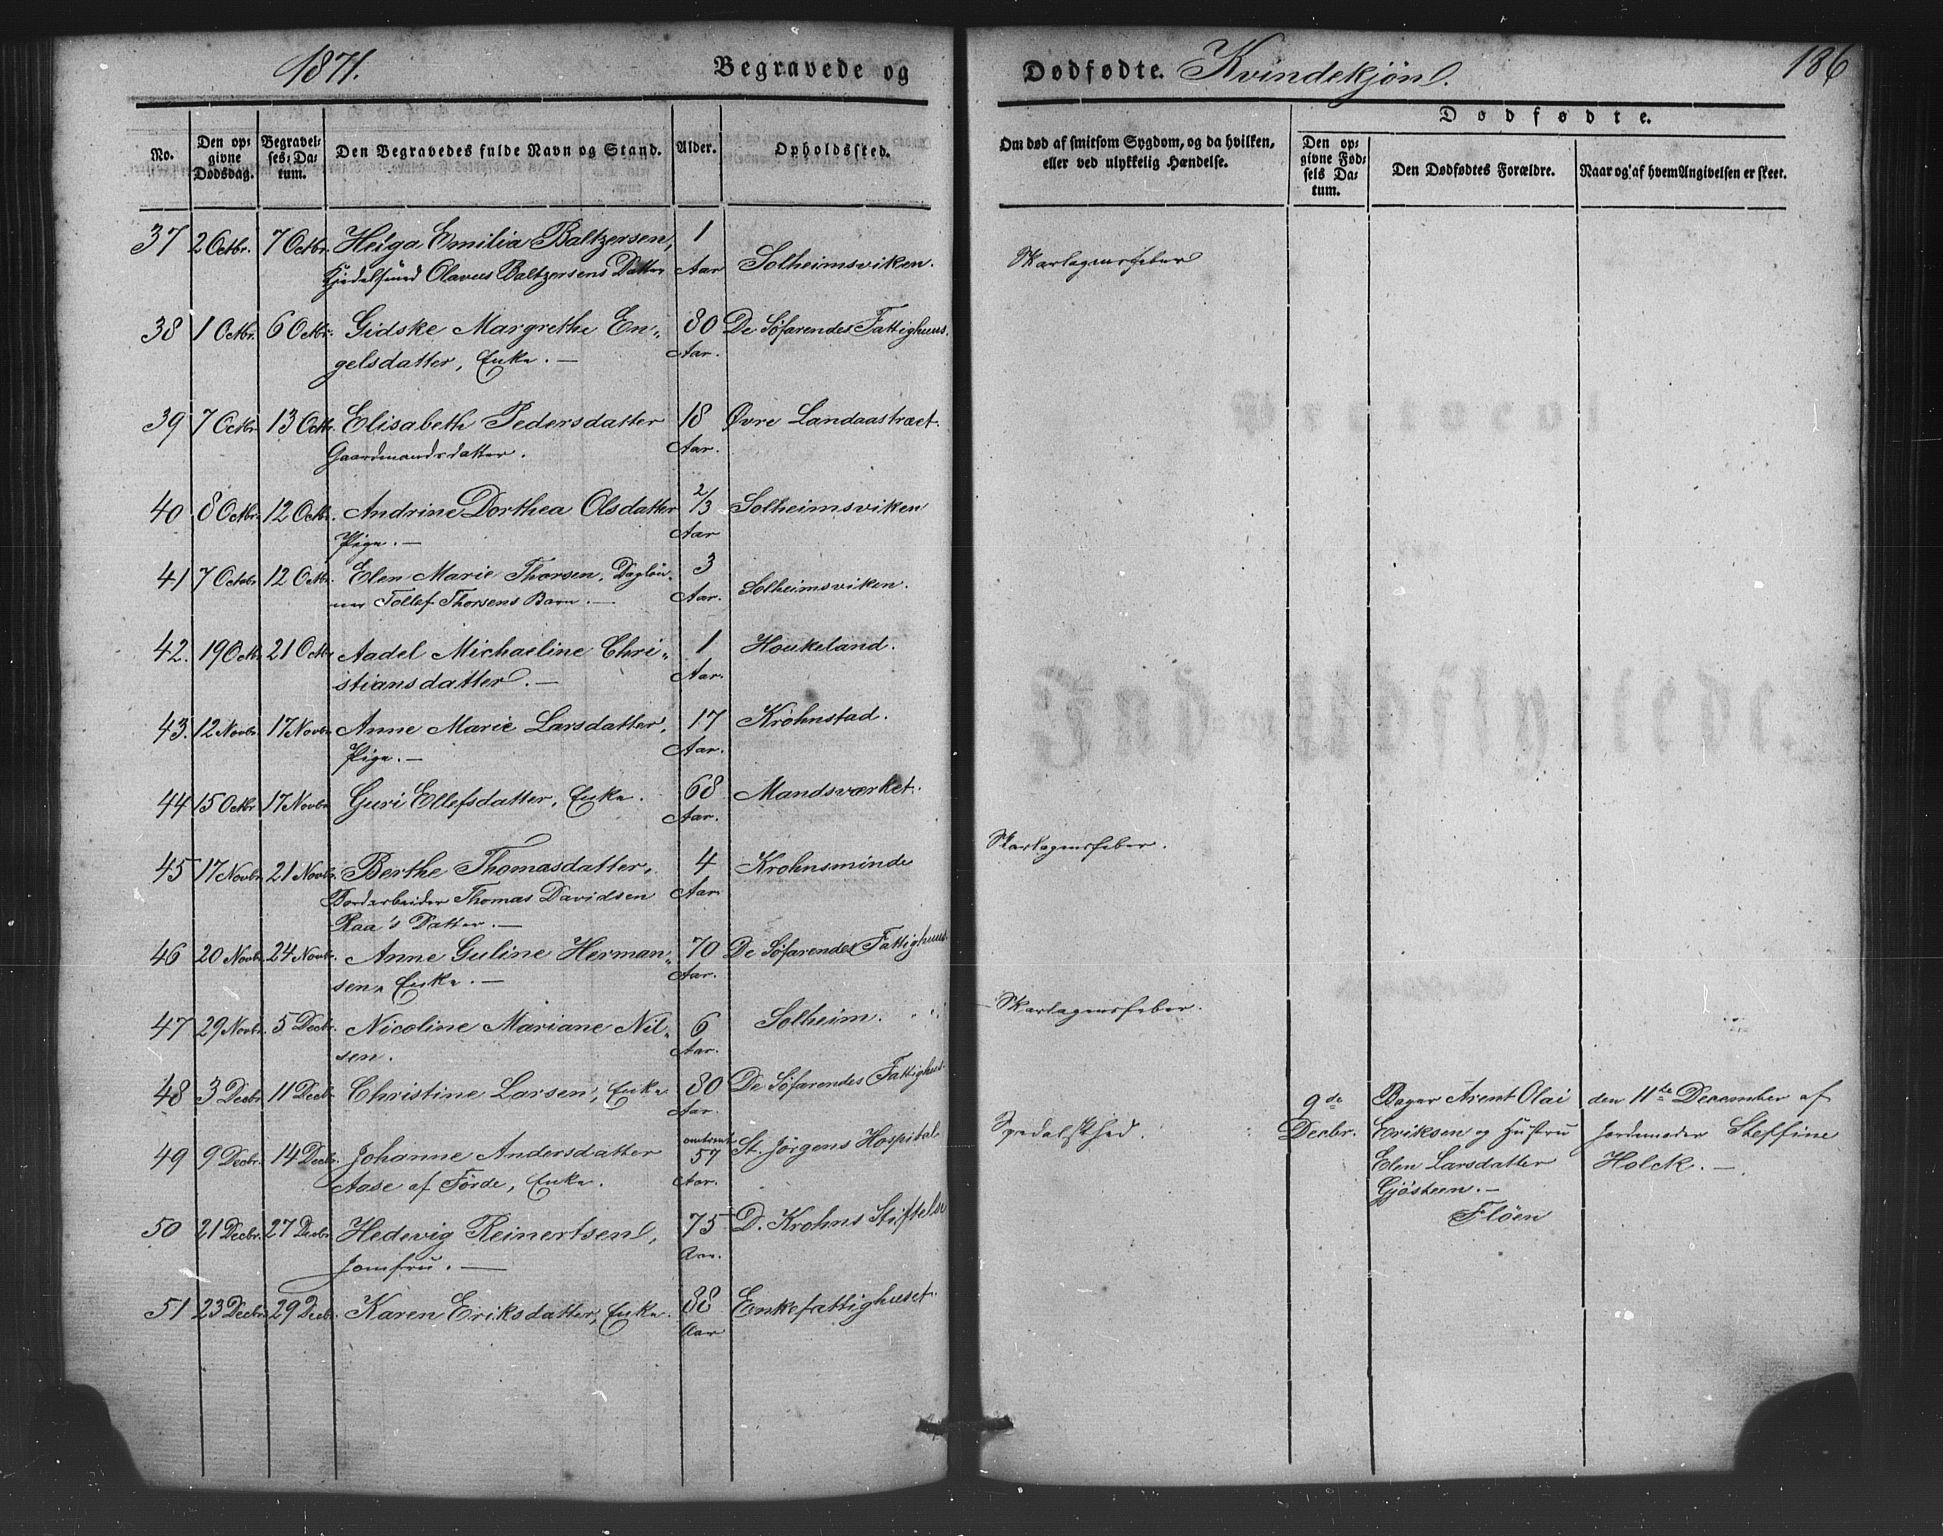 1871.
Begravede og
Dødfødte. Kvindekjön.
186
No.
Den op-
givne
Dødsdag.
Begravel-
ses-Da-
tum.
Den Begravedes fulde Navn og Stand.
Alder.
Opholdssted.
Om død af smitsom Sygdom, og da hvilken,
eller ved ulykkelig Hændelse.
Dødfødte.
Den op-
givne Fød-
sels Da-
tum.
Den Dødfødtes Forældre.
Naar og af hvem Angivelsen er skeet.
37 2 Octbr. 7 Octbr. Helga Emilia Baltzersen, 1
Kjedelsmed Olaves Baltzersens Datter Aar Solheimsviken. Skarlagensfeber
38 1 Octbr. 6 Octbr. Gidske Margrethe En- 80 De Söfarendes Fattighuus.
gelsdatter, Enke. — Aar.
39 7 Octbr. 13 Octbr. Elisabeth Pedersdatter 18 Øvre Landaastræet.
Gaardmandsdatter. Aar.
40 8 Octbr. 12 Octbr. Andrine Dorthea Olsdatter 2/3 Solheimsviken
Pige. — Aar
41 7 Octobr. 12 Octbr. Elen Marie Thorsen, Daglön- 3
ner Tollef Thorsens Barn. — Aar. Solheimsviken.
42. 19 Octbr. 21 Octbr. Aadel Michaeline Chri- 1 Houkeland.
stiansdatter. — Aar.
43. 12 Novbr. 17 Novbr. Anne Marie Larsdatter, 17 Krohnstad.
Pige. — Aar.
44 15 Octbr. 17 Novbr. Guri Ellefsdatter, Enke. 68 Mandsværket.
Aar.
45 17 Novbr. 21 Novbr. Berthe Thomasdatter, 4 Krohnsminde Skarlagensfeber.
Jordarbeider Thomas Davidsen Aar.
Raa's Datter. —
46 20 Novbr. 24 Novbr. Anne Guline Herman- 70 De Söfarendes Fattighuus.
sen, Enke. — Aar.
47 29 Novbr. 5 Decbr. Nicoline Mariane Nil- 6 Solheim. Skarlagensfeber.
sen. Aar.
48 3 Decbr. 11 Decbr. Christine Larsen, Enke 80 De Söfarendes Fattighus.
Aar.
49 9 Decbr. 14 Decbr. Johanne Andersdatter omtrent 57 St. Jörgens Hospital Spedalskhed.
Aase af Förde, Enke. Aar.
50 21 Decbr. 27 Decbr. Hedevig Reinertsen, 75 D. Krohns Stiftelse
Jomfru. — Aar.
51 23 Decbr. 29 Decbr. Karen Eriksdatter, Enke. 88 Enkefattighuset.
Aar
9de Bager Arent Olai den 11te December af
Decbr. Eriksen og Hustru Jordemoder Steffine
Elen Larsdatter Holck. —
Gjösteen. —
Flöen